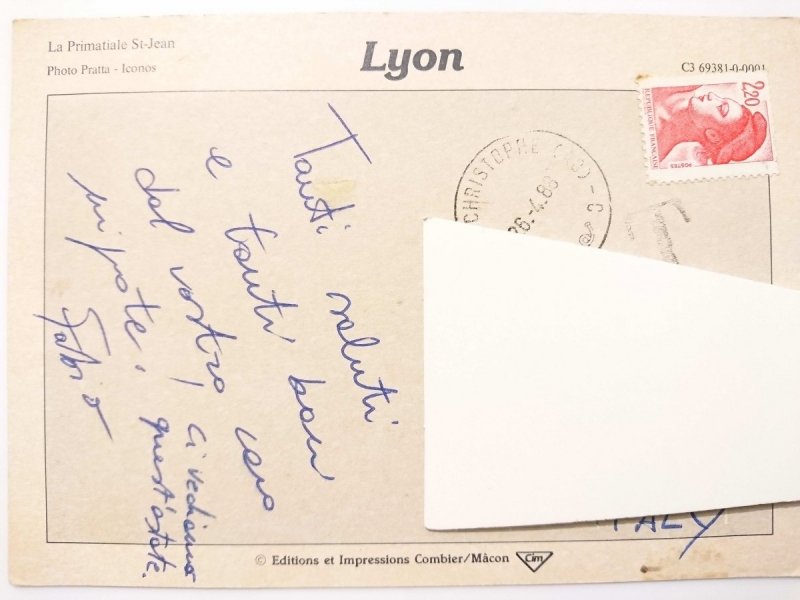 La Primatiale St-Jean
Photo Pratta - Iconos
Lyon
C3 69381-0-0001
2,20
REPUBLIQUE FRANÇAISE
POSTES
CHRISTOPHE
26.4.88
Tanti saluti
e tanti bau
del vostro caro
nipote.
Fabio
ci vediamo
quest'estate.
ITALY
© Editions et Impressions Combier/Mâcon
Cim